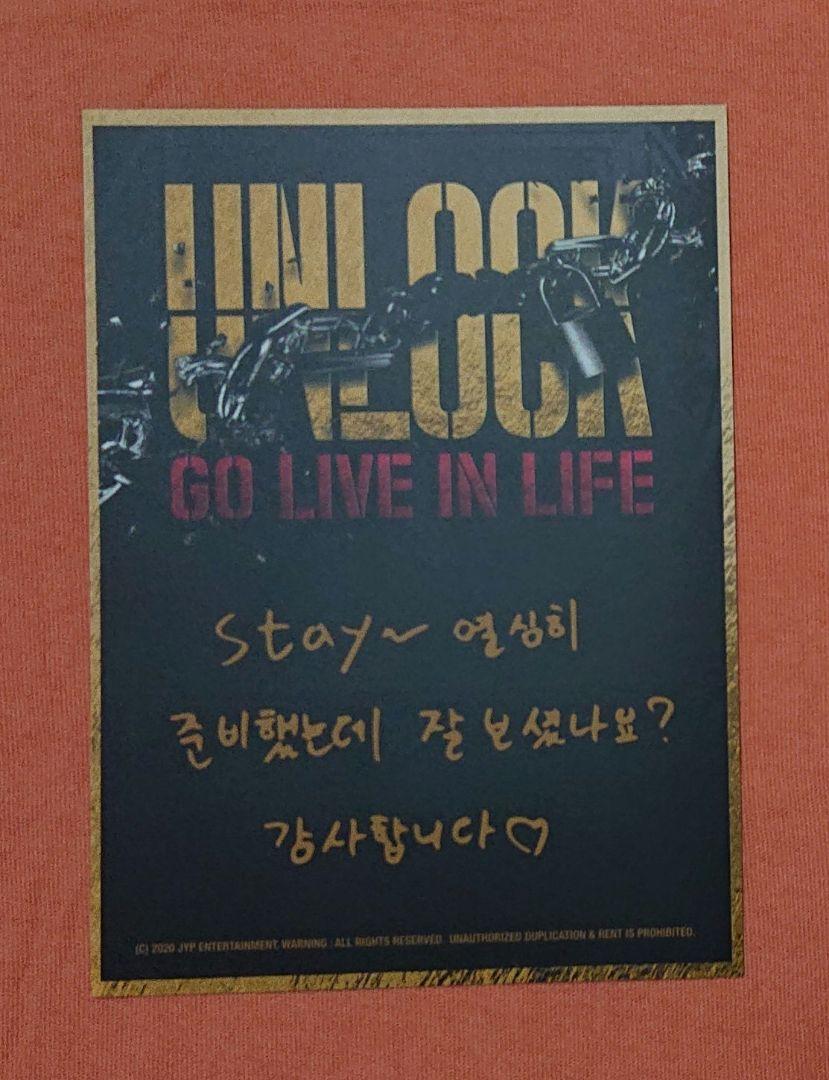 UNLOCK
GO LIVE IN LIFE
Stay~ 열심히
준비했는데 잘 보셨나요?
감사합니다♡
(C) 2020 JYP ENTERTAINMENT, WARNING : ALL RIGHTS RESERVED. UNAUTHORIZED DUPLICATION & RENT IS PROHIBITED.